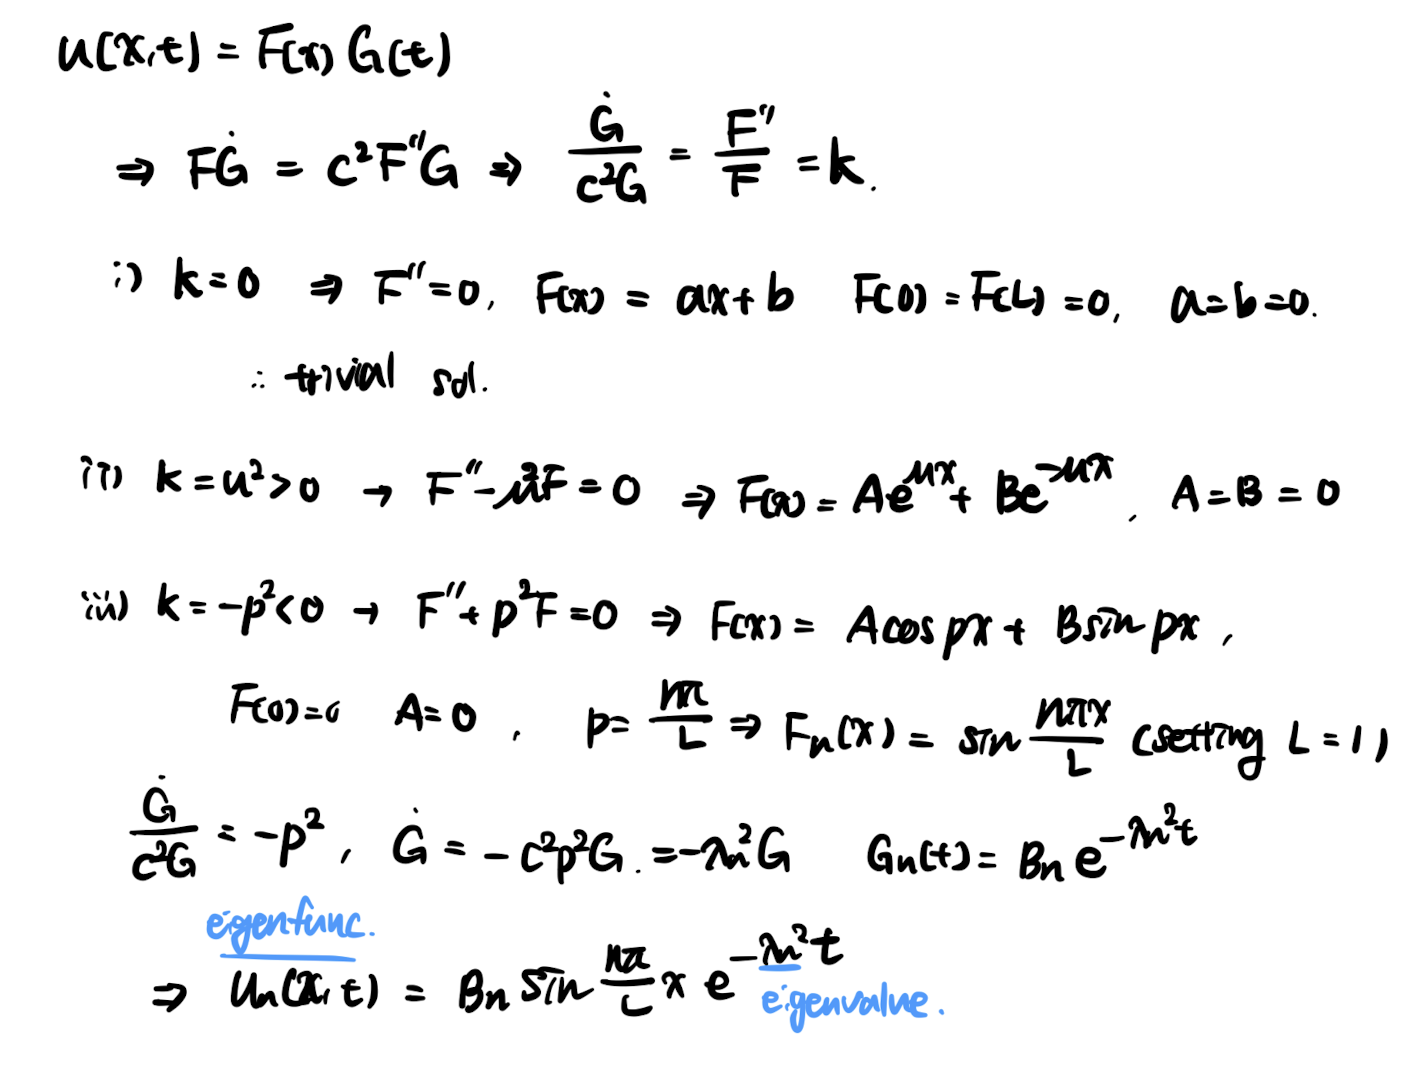 u(x,t) = F(x) G(t)
⇒ FĠ = c²F''G ⇒ Ġ/c²G = F''/F = k.
i) k=0 ⇒ F''=0, F(x) = ax+b F(0) = F(L) =0, a=b=0.
∴ trivial sol.
ii) k=u²>0 → F''-μ²F=0 ⇒ F(x) = Ae^{μx} + Be^{-μx}, A=B=0
iii) k=-p²<0 → F''+p²F=0 ⇒ F(x) = A cos px + B sin px,
F(0)=0 A=0, p= nπ/L ⇒ Fn(x) = sin nπx/L (setting L=1)
Ġ/c²G = -p², Ġ = -c²p²G. =-λn²G Gn(t) = Bn e^{-λn²t}
eigenfunc.
⇒ Un(x,t) = Bn sin nπ/L x e^{-λn²t}
eigenvalue.